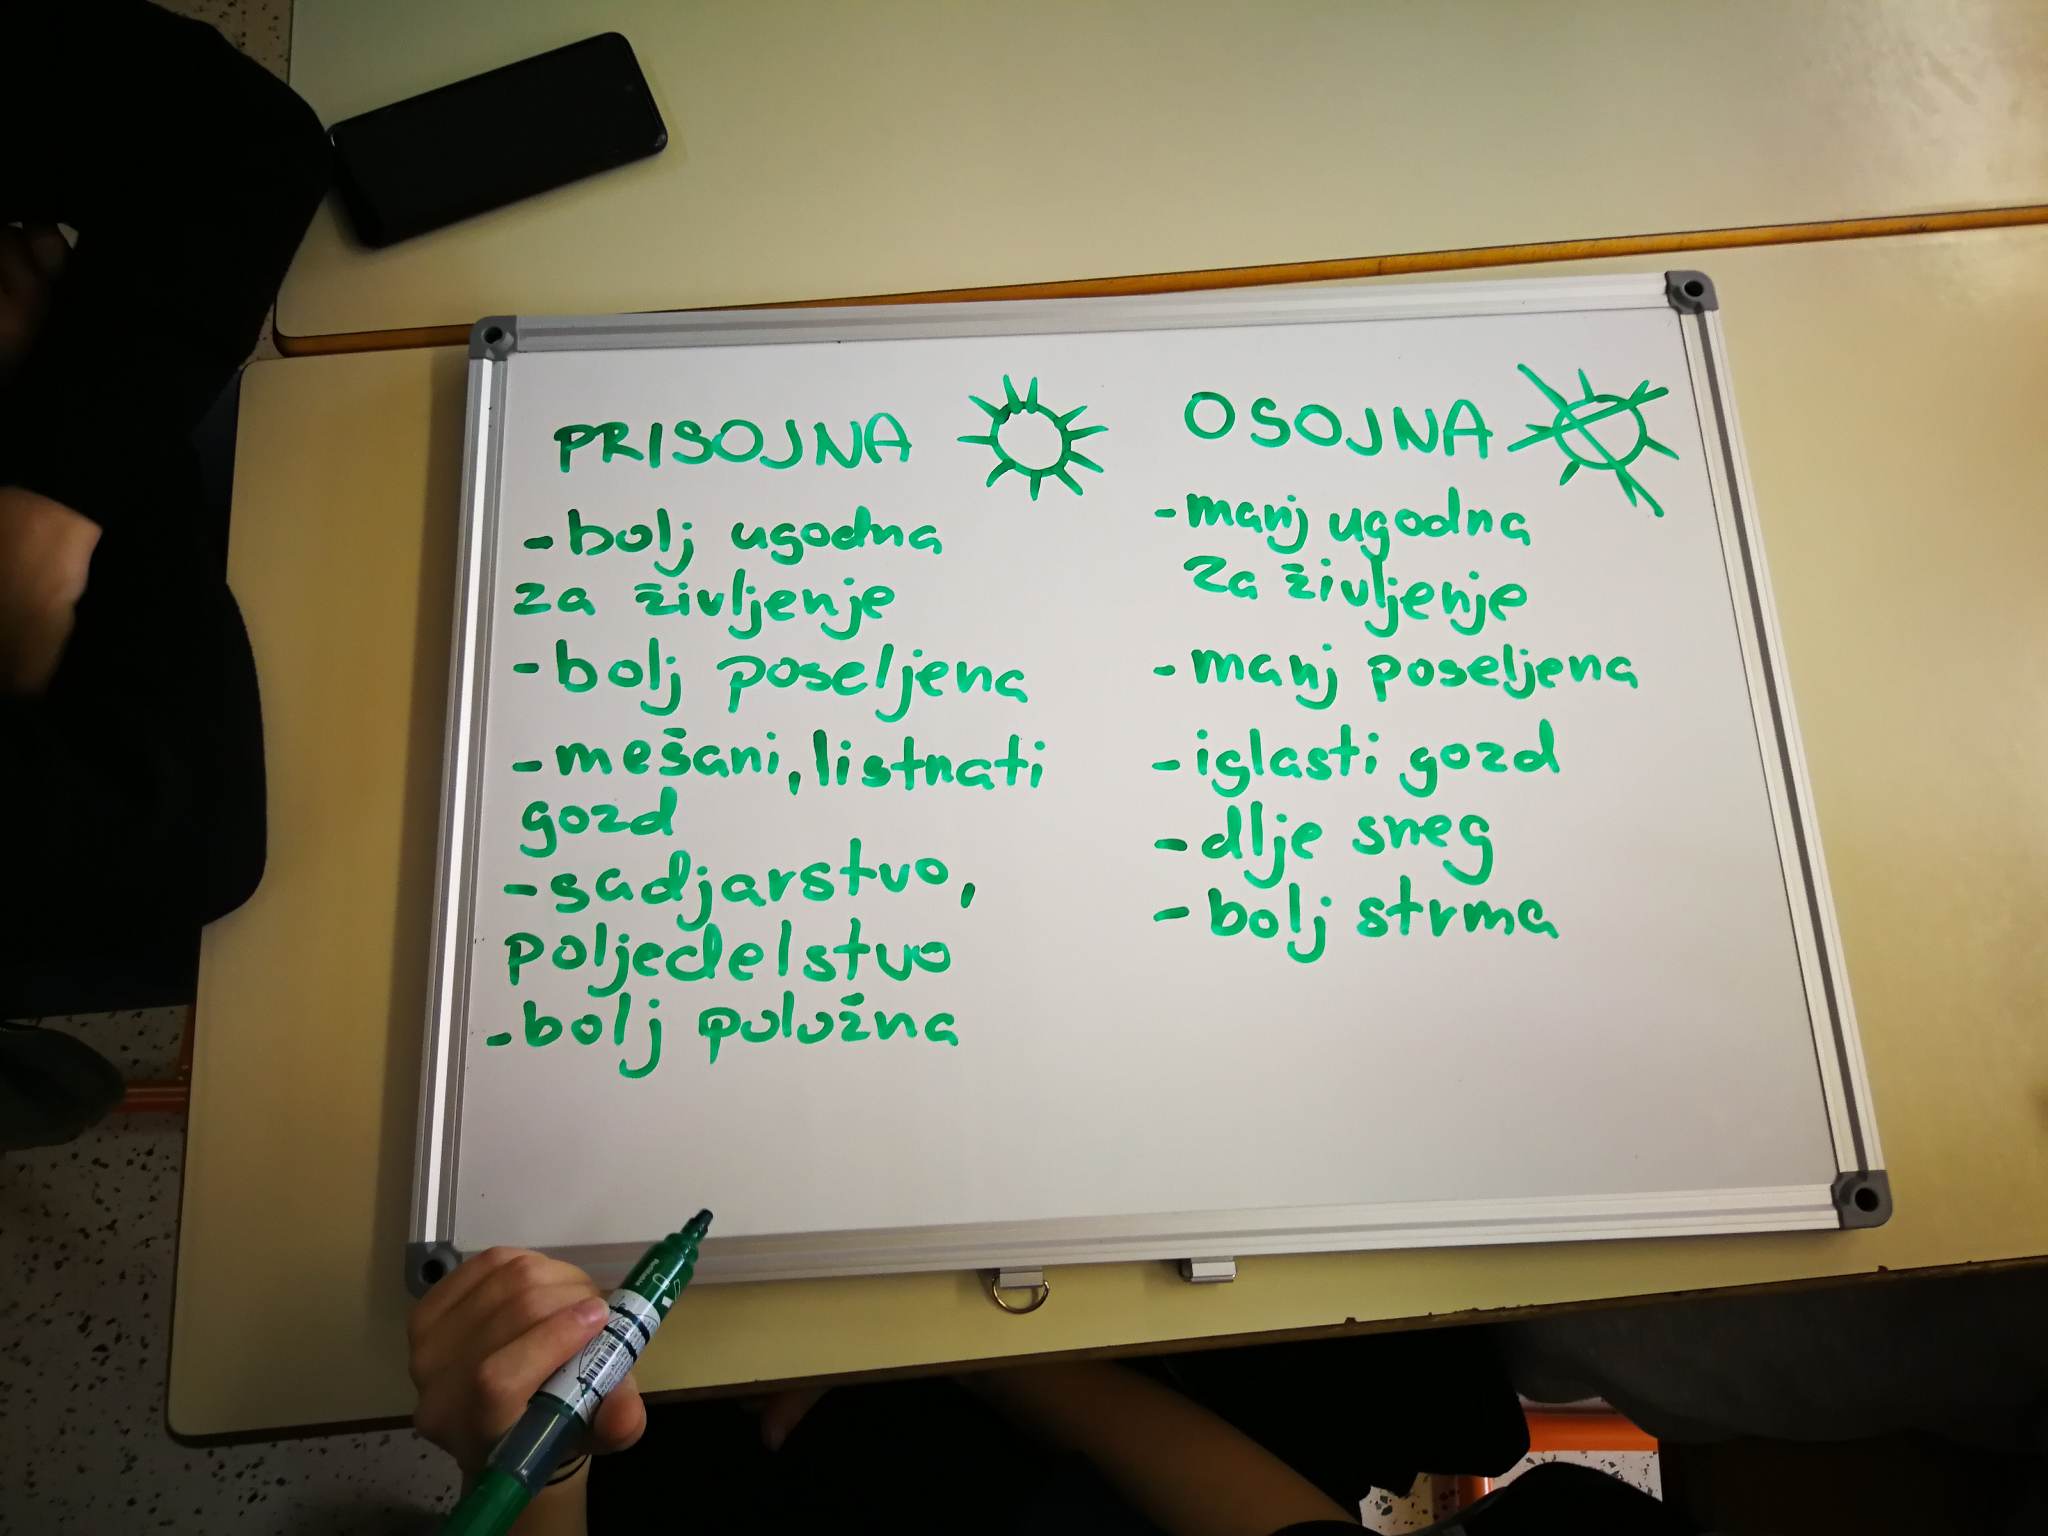 PRISOJNA
- bolj ugodna
za življenje
- bolj poseljena
- mešani, listnati
gozd
- sadjarstvo,
poljedelstvo
- bolj položna
OSOJNA
- manj ugodna
za življenje
- manj poseljena
- iglasti gozd
- dlje sneg
- bolj strma